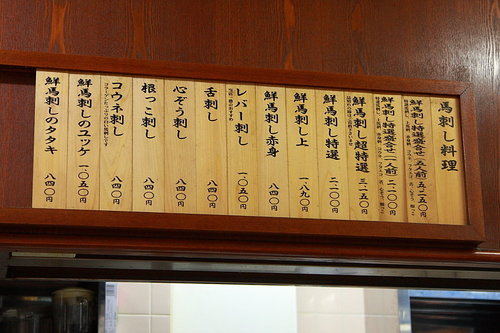 馬刺し料理
鮮馬刺し特選盛合せ(五人前) 五二五〇円
鮮馬刺し特選盛合せ(二人前) 二一〇〇円
鮮馬刺し 超特選 三一五〇円
鮮馬刺し特選 二一〇〇円
鮮馬刺し上 一八九〇円
鮮馬刺し赤身 八四〇円
レバー刺し 一〇五〇円
舌刺し 八四〇円
心ぞう刺し 八四〇円
根っこ刺し 八四〇円
コウネ刺し 八四〇円
鮮馬刺しのユッケ 一〇五〇円
鮮馬刺しのタタキ 八四〇円